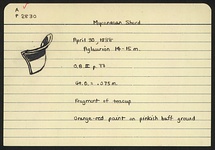 A
P 2830
Mycenaean Sherd
April 30, 1938
14-15 m.
p. 77
Ht. 0. = .073 m.
Fragment of teacup
Orange-red paint on pinkish buff ground